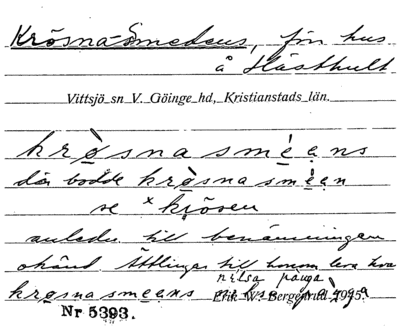 Krösna-Smedens, fön hus
å Hästhult
Vittsjö sn V. Göinge hd, Kristianstads län.
krø̀snasmèens
där bodde krø̀snasmèen
se ˣkjösen
anledn till benämningen
okänd Ättlingar till honom leva kvar
nilsa pånga
krøsnasmeens
Erik W. Bergstrand, 1925.
Nr 5393.